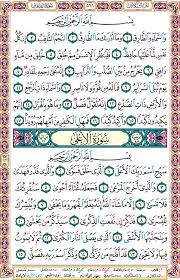 بِسْمِ اللَّهِ الرَّحْمَٰنِ الرَّحِيمِ
وَالسَّمَاءِ وَالطَّارِقِ ١ وَمَا أَدْرَاكَ مَا الطَّارِقُ ٢ النَّجْمُ الثَّاقِبُ ٣ إِن كُلُّ
نَفْسٍ لَّمَّا عَلَيْهَا حَافِظٌ ٤ فَلْيَنظُرِ الْإِنسَانُ مِمَّ خُلِقَ ٥ خُلِقَ مِن مَّاءٍ دَافِقٍ ٦
يَخْرُجُ مِن بَيْنِ الصُّلْبِ وَالتَّرَائِبِ ٧ إِنَّهُ عَلَىٰ رَجْعِهِ لَقَادِرٌ ٨ يَوْمَ تُبْلَى
السَّرَائِرُ ٩ فَمَا لَهُ مِن قُوَّةٍ وَلَا نَاصِرٍ ١٠ وَالسَّمَاءِ ذَاتِ الرَّجْعِ ١١
وَالْأَرْضِ ذَاتِ الصَّدْعِ ١٢ إِنَّهُ لَقَوْلٌ فَصْلٌ ١٣ وَمَا هُوَ بِالْهَزْلِ ١٤ إِنَّهُمْ
يَكِيدُونَ كَيْدًا ١٥ وَأَكِيدُ كَيْدًا ١٦ فَمَهِّلِ الْكَافِرِينَ أَمْهِلْهُمْ رُوَيْدًا ١٧
سُورَةُ الْأَعْلَىٰ
بِسْمِ اللَّهِ الرَّحْمَٰنِ الرَّحِيمِ
سَبِّحِ اسْمَ رَبِّكَ الْأَعْلَى ١ الَّذِي خَلَقَ فَسَوَّىٰ ٢ وَالَّذِي قَدَّرَ فَهَدَىٰ ٣
وَالَّذِي أَخْرَجَ الْمَرْعَىٰ ٤ فَجَعَلَهُ غُثَاءً أَحْوَىٰ ٥ سَنُقْرِئُكَ فَلَا تَنسَىٰ ٦
إِلَّا مَا شَاءَ اللَّهُ إِنَّهُ يَعْلَمُ الْجَهْرَ وَمَا يَخْفَىٰ ٧ وَنُيَسِّرُكَ لِلْيُسْرَىٰ ٨
فَذَكِّرْ إِن نَّفَعَتِ الذِّكْرَىٰ ٩ سَيَذَّكَّرُ مَن يَخْشَىٰ ١٠
وَيَتَجَنَّبُهَا الْأَشْقَى ١١ الَّذِي يَصْلَى النَّارَ الْكُبْرَىٰ ١٢ ثُمَّ لَا يَمُوتُ فِيهَا
وَلَا يَحْيَىٰ ١٣ قَدْ أَفْلَحَ مَن تَزَكَّىٰ ١٤ وَذَكَرَ اسْمَ رَبِّهِ فَصَلَّىٰ ١٥